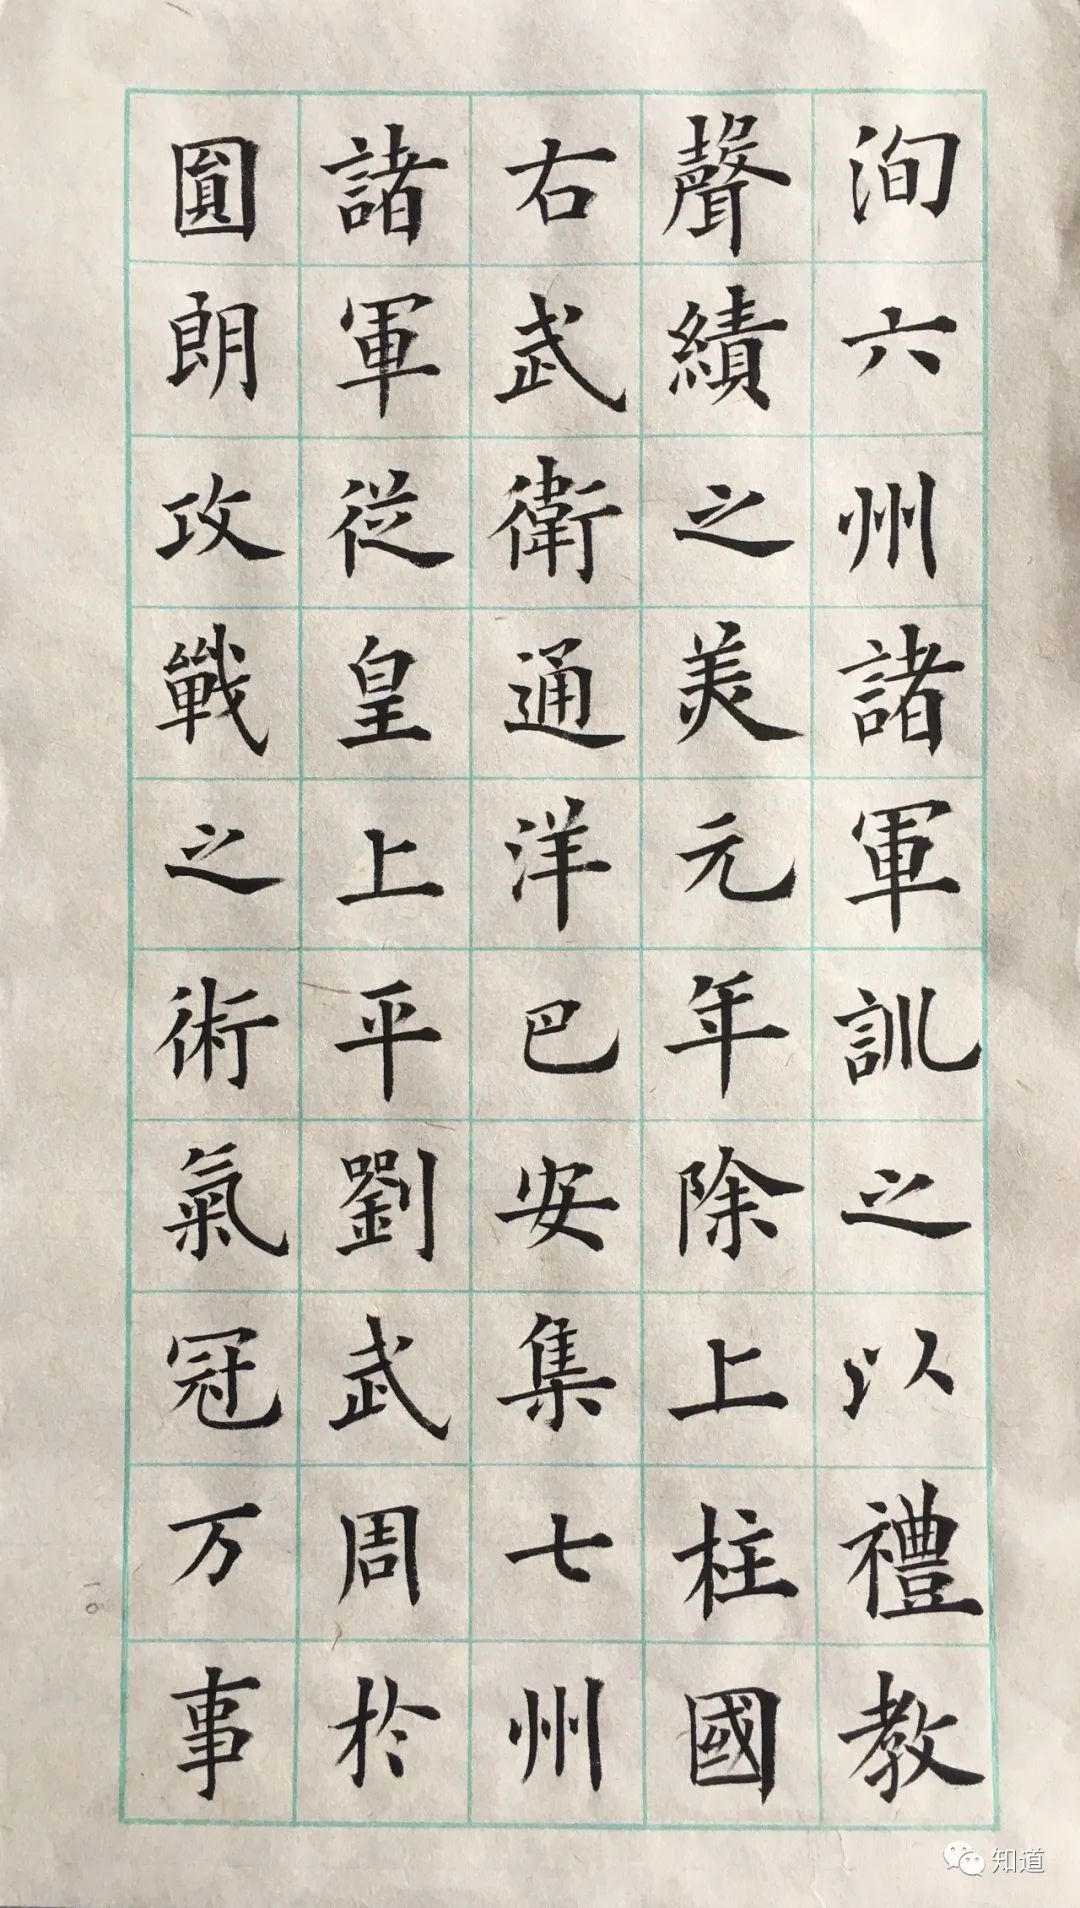 洵六州諸軍訓之以禮教
聲績之美元年除上柱國
右武衛通洋巴安集七州
諸軍從皇上平劉武周於
圓朗攻戰之術氣冠万事
知道